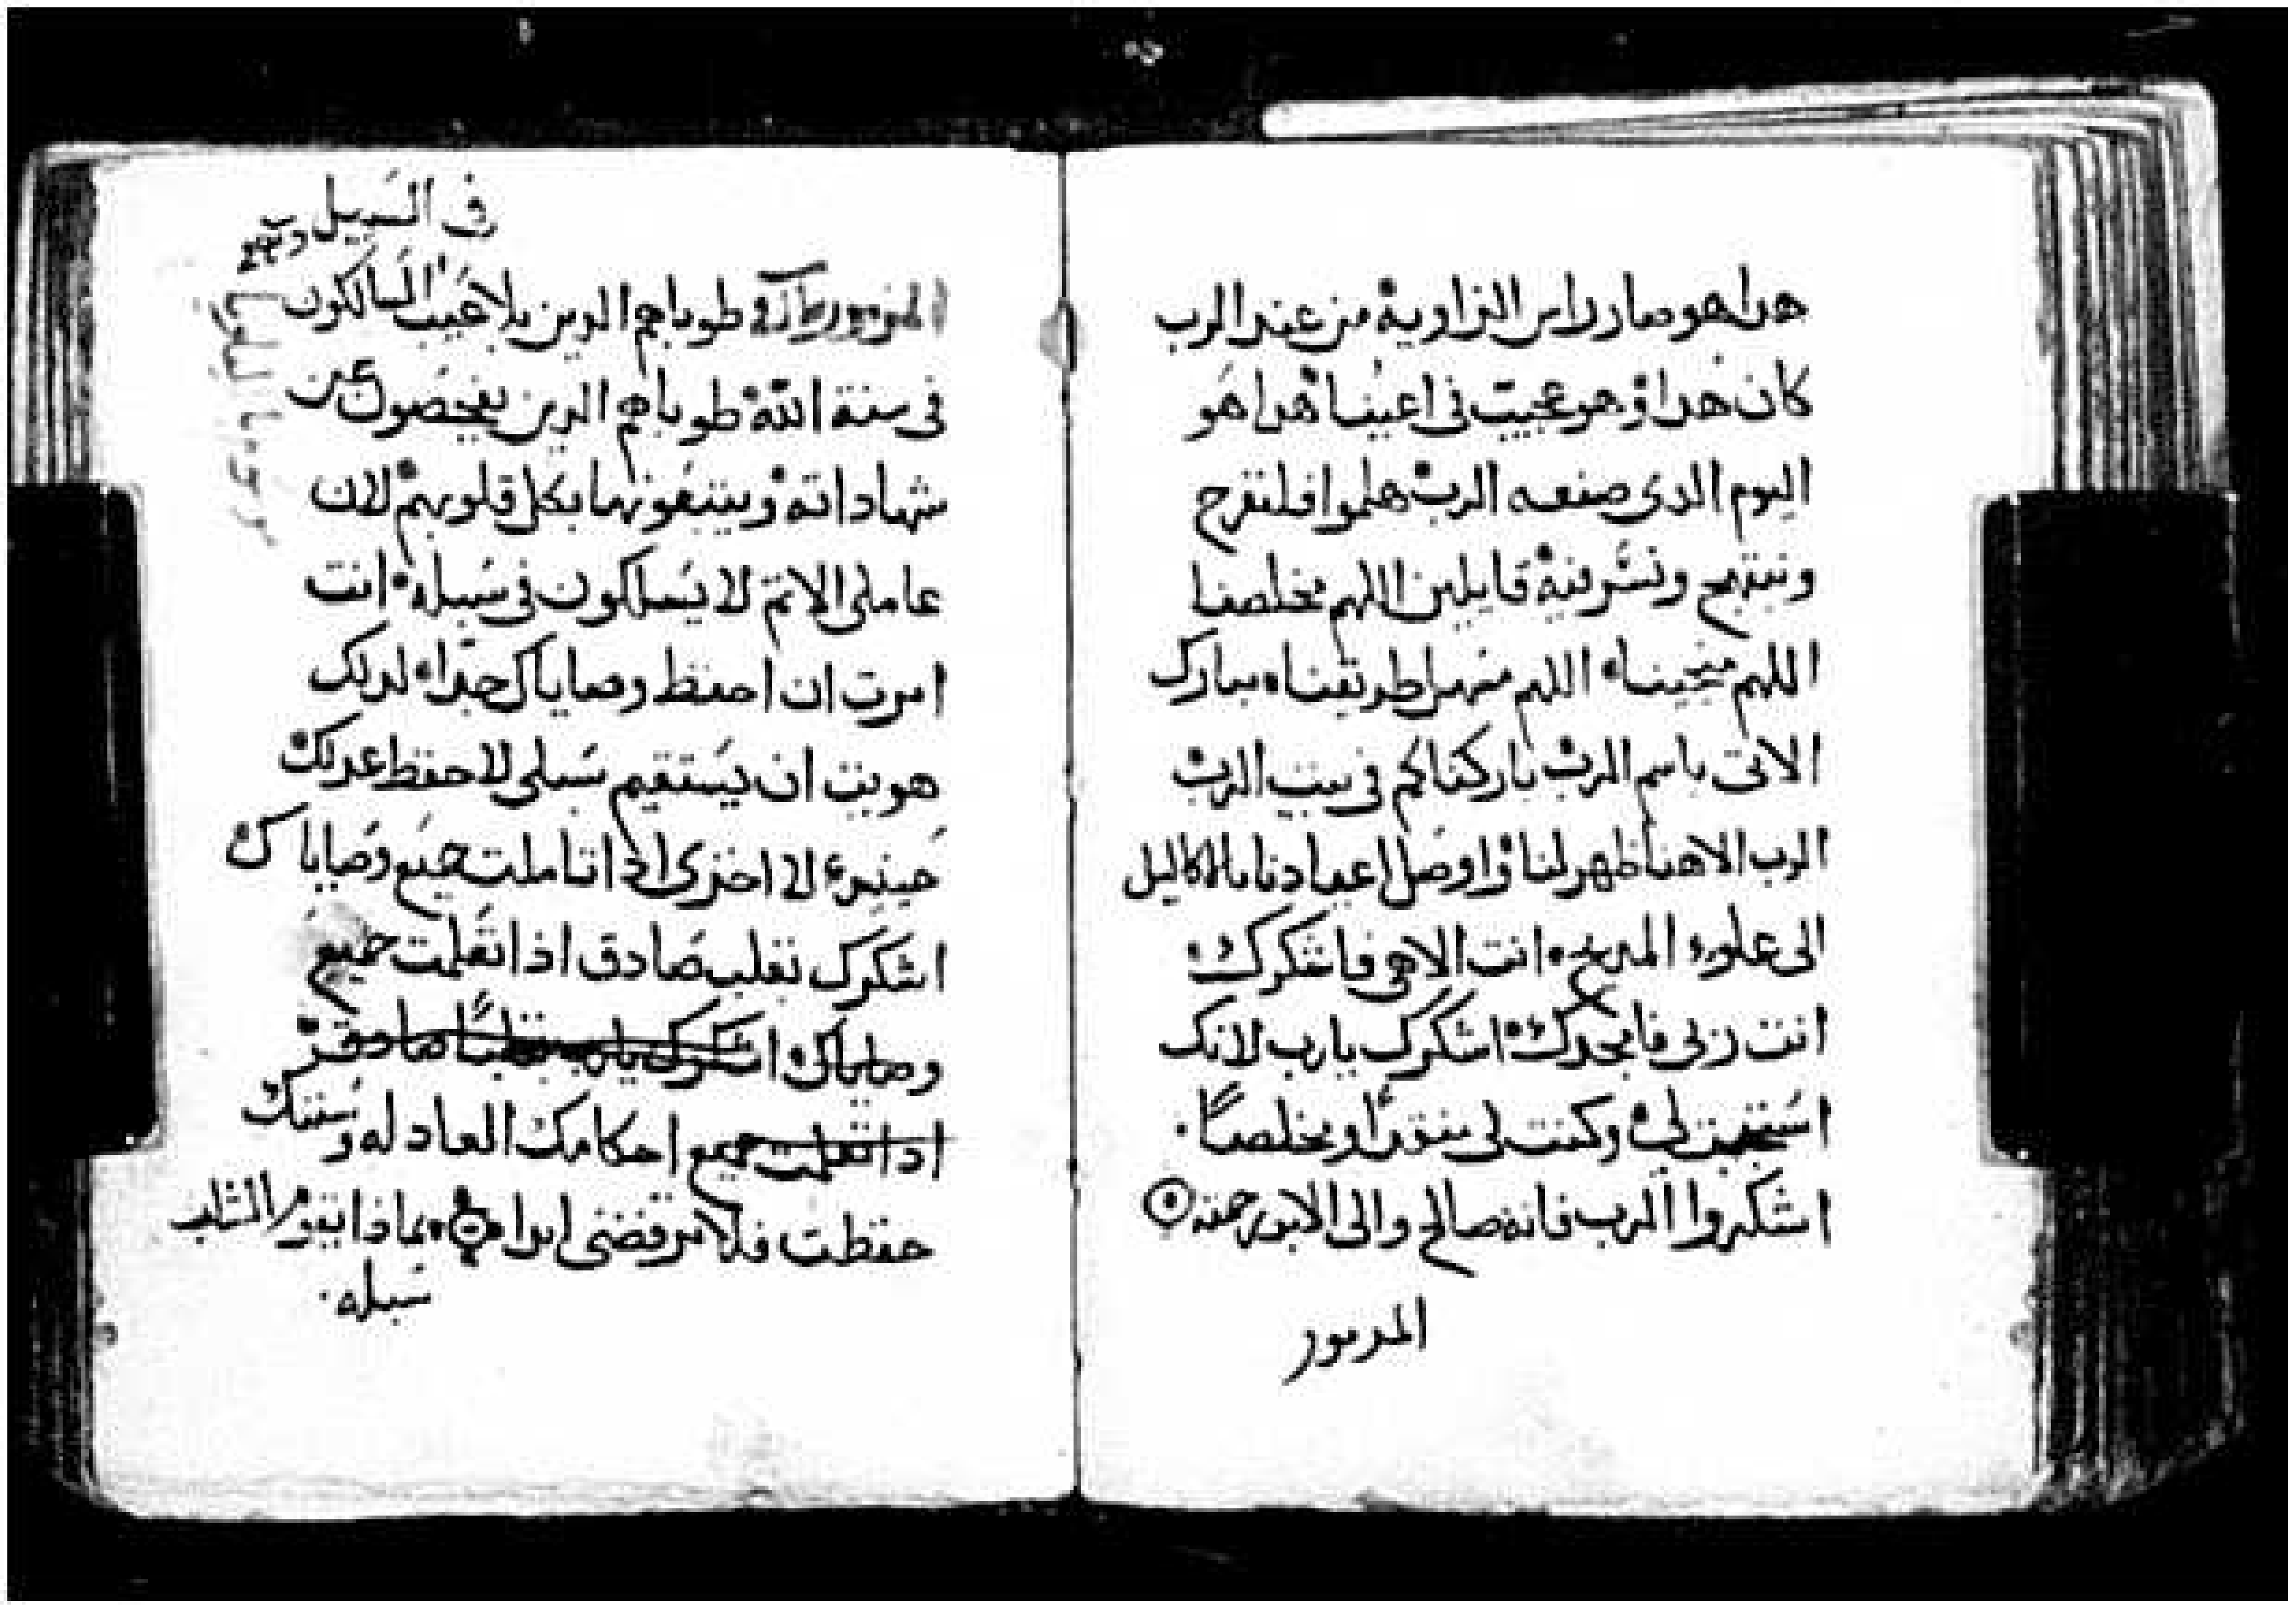 هدا هو صار راس الزاوية من عند الرب
كان هدا وهو عجيب في اعيننا هدا هو
اليوم الدى صنعه الرب هلموا فلنفرح
ونبتهج ونسر فيه قايلين اللهم مخلصنا
اللهم منجينا اللهم سهل طريقنا مبارك
الاتى باسم الرب باركناكم في بيت الرب
الرب الاهنا ظهر لنا واوصل اعيادنا بالاكاليل
الى علوه المدبح انت الاهى فاشكرك
انت ربى فامجدك اشكرك يارب لانك
استجبت لى وكنت لى منقدا ومخلصاً
اشكروا الرب فانه صالح والى الابد رحمته
المزمور
في السبيل
المزمور طوباهم الدين بلا عيب السالكون
في سنة الله طوباهم الدين يفحصون عن
شهاداته ويتبعونها بكل قلوبهم لان
عاملى الاتم لا يسلكون في سبله انت
امرت ان احفظ وصاياك جدا لدلك
هويت ان يستقيم سبلى لاحفظ عدلك
حينيد لا اخزى اذا تاملت جميع وصاياك
اشكرك بقلب صادق اذا تعلمت جميع
وصاياك اشكرك يارب بقلب صادق
اداتعلمت جميع احكامك العادله وسننك
حفظت فلا ترفضنى ابدا بماذا يقوم الشاب
سبله